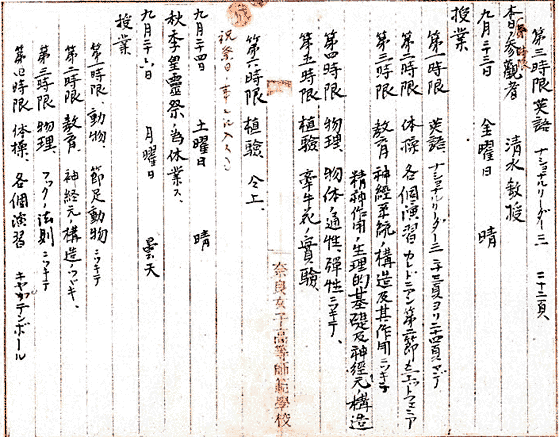 第三時限 英語 ナショナルリーダー三 二十二頁
本日ノ参観者 清水敏授
九月二十三日 金曜日 晴
授業
第一時限 英語 ナショナルリーダー三 二十三頁ヨリ二十四頁マデ
第二時限 体操 各個演習
第三時限 教育 神経系統ノ構造及其作用ニツキテ
精神作用ノ生理的基礎及神経元ノ構造
第四時限 物理 物体ノ通性、弾性ニツキテ、
第五時限 植験 牽牛花ノ実験、
第六時限 植験 仝上、
奈良女子高等師範學校
九月二十四日 土曜日 晴
秋季皇霊祭ノ為休業ス、
九月二十六日 月曜日 曇天
授業
第一時限、動物、節足動物ニツキテ
第二時限 教育、神経元ノ構造ノツヾキ、
第三時限 物理、フックノ法則ニツキテ
第四時限 体操、各個演習 キャプテンボール